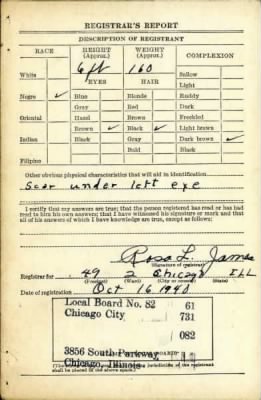 REGISTRAR'S REPORT
DESCRIPTION OF REGISTRANT
RACE HEIGHT (Approx.) WEIGHT (Approx.) COMPLEXION
White 6 ft 160 Sallow
EYES HAIR Light
Negro ✓ Blue Blonde Ruddy
Gray Red Dark
Oriental Hazel Brown Freckled
Brown ✓ Black ✓ Light brown
Indian Black Gray Dark brown ✓
Bald Black
Filipino
Other obvious physical characteristics that will aid in identification
Scar under left eye
I certify that my answers are true; that the person registered has read or has had
read to him his own answers; that I have witnessed his signature or mark and that
all of his answers of which I have knowledge are true, except as follows:
Rosa L. James
(Signature of registrar)
Registrar for 49 2 Chicago Ill
(Precinct) (Ward) (City or county) (State)
Date of registration Oct 16 1940
Local Board No. 82 61
Chicago City 731
082
3856 South Parkway
Chicago, Illinois
shall be placed in the above space.)